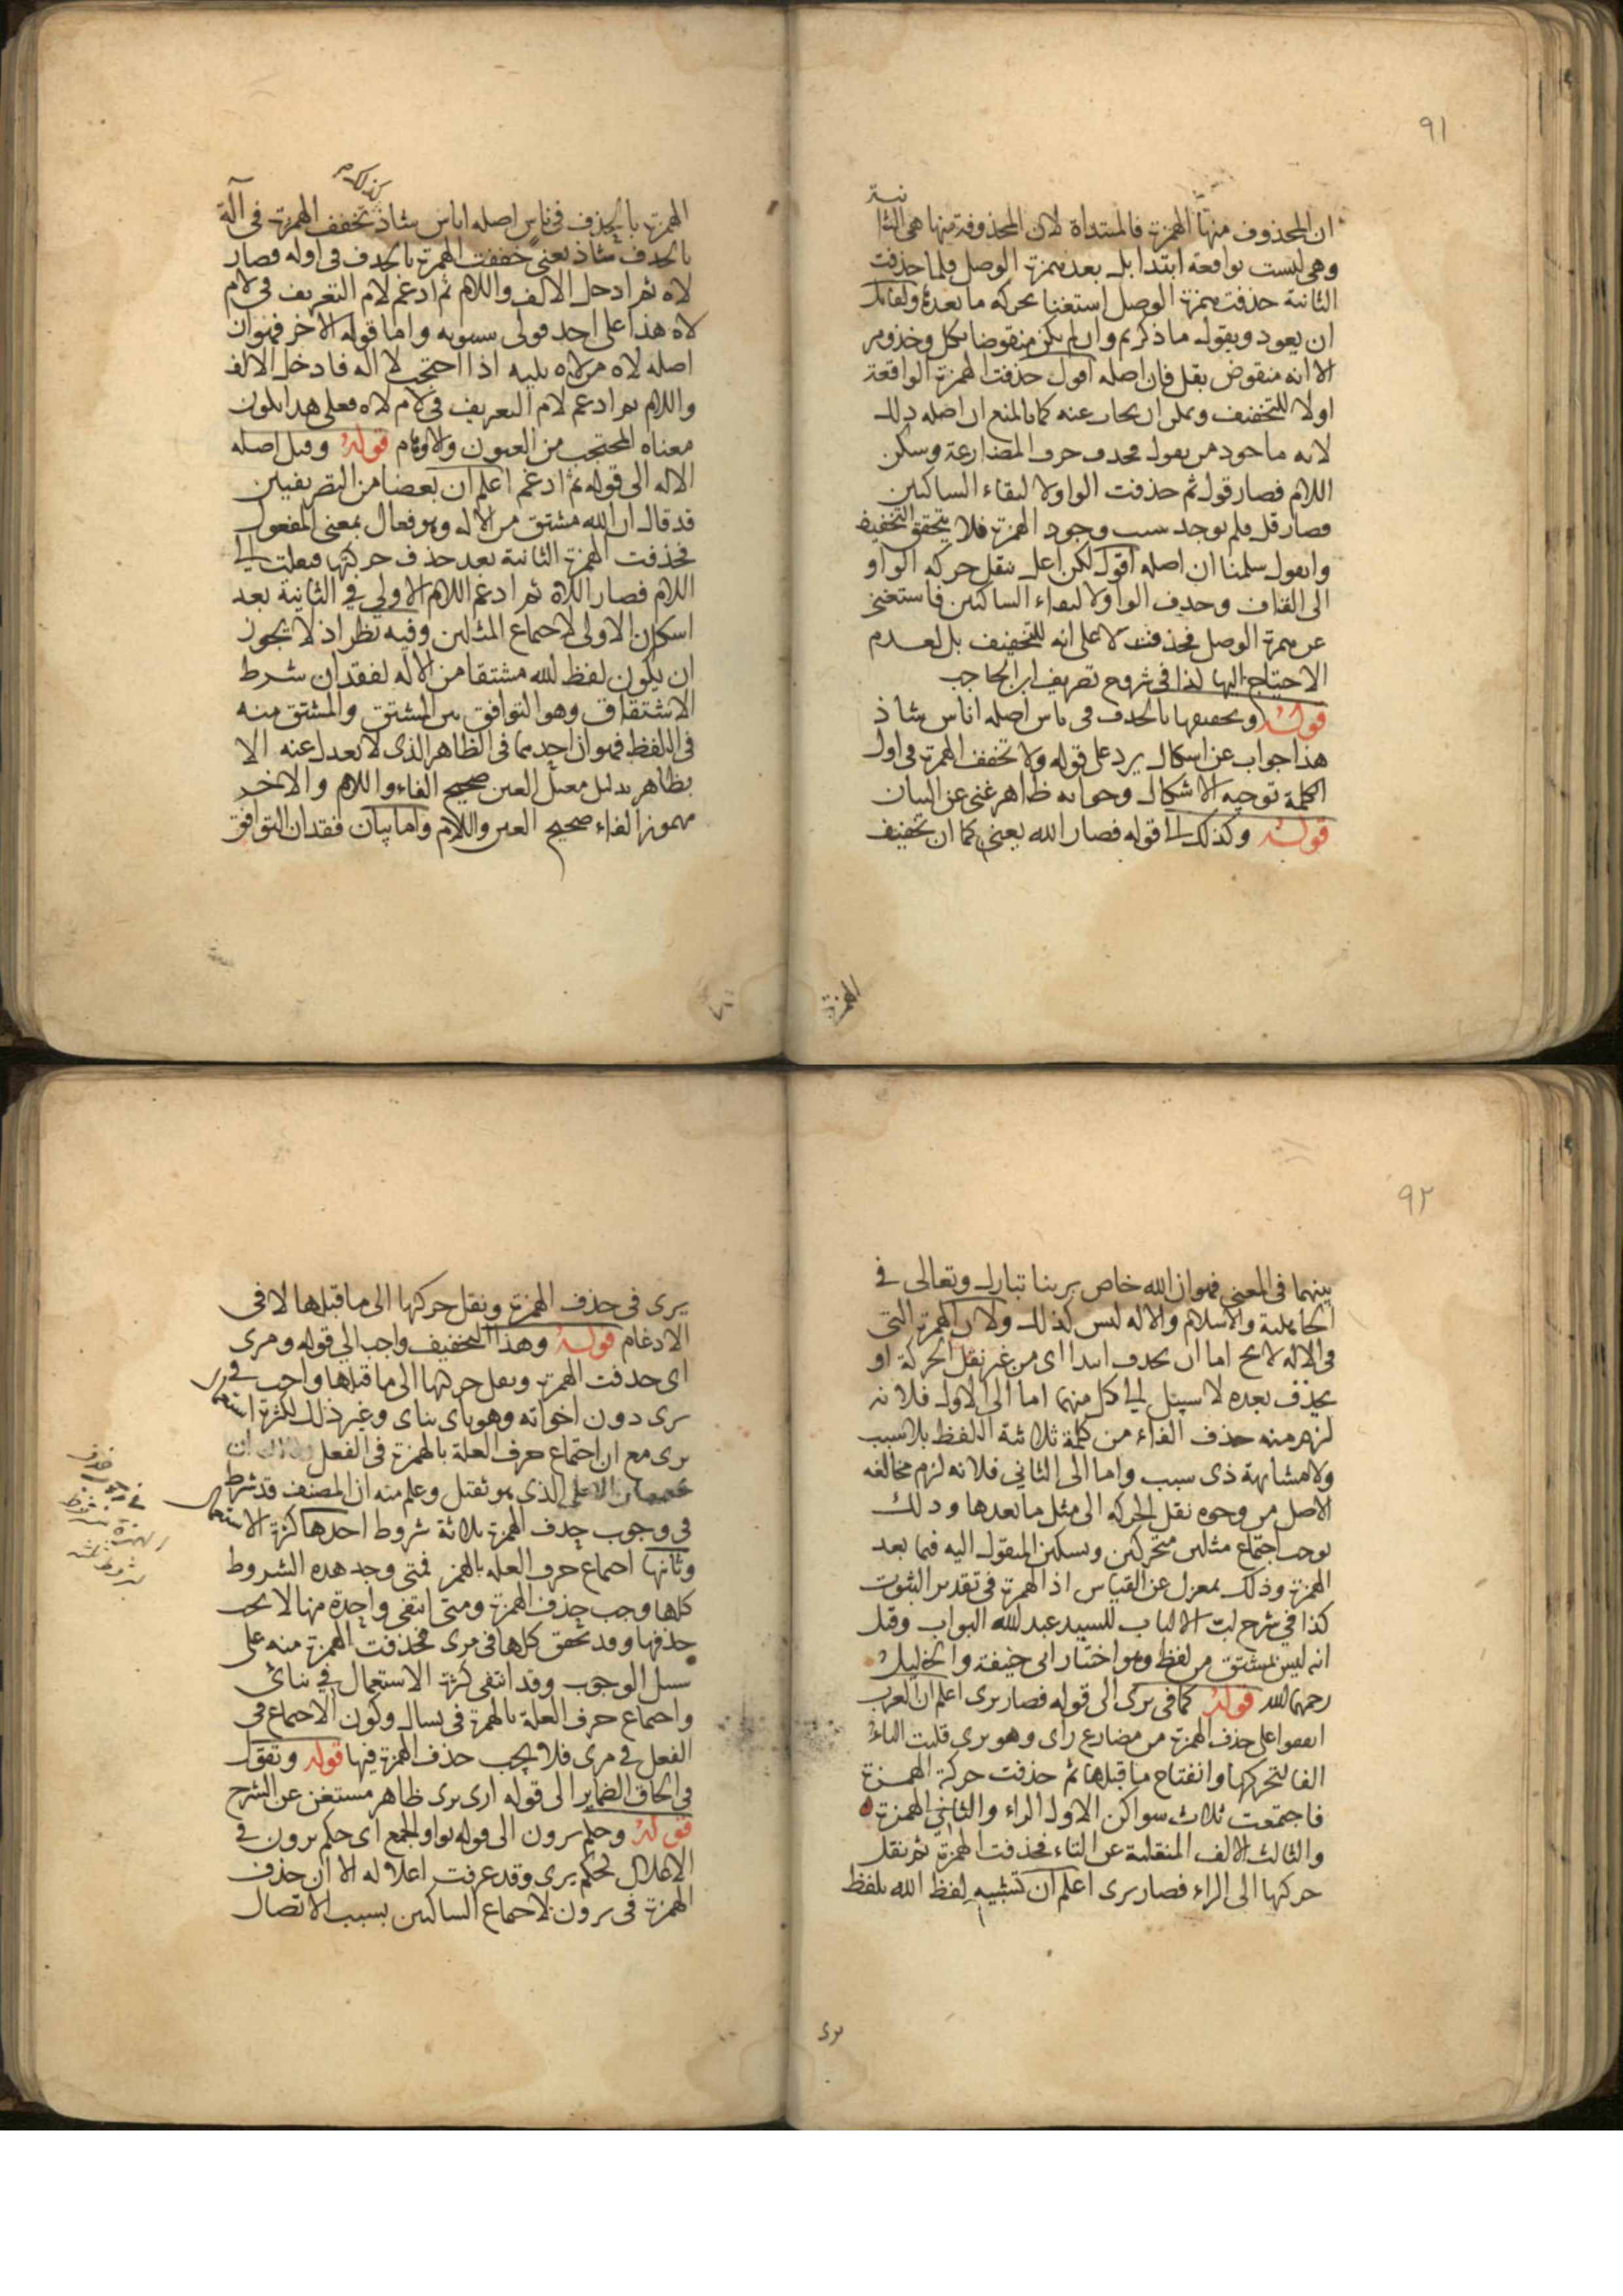 ٩١
ان المحذوف منها الهمزة فالمبتداة لان المحذوفة منها هى الثا
نية
وهى ليست بواقعة ابتدا بل بعد همزة الوصل فلما حذفت
الثانية حذفت همزة الوصل استغنا بحركه ما بعدها ولقائل
ان يعود ويقول ما ذكرتم وان لم يكن منقوضا بكل وخذ ومر
الا انه منقوض بقل فان اصله اقول حذفت الهمزة الواقعة
اولا للتخفيف ويمكن ان يجاب عنه كما بالمنع ان اصله ذلك
لانه ماخوذ من يقول فحذف حرف المضارعة وسكن
اللام فصار قول ثم حذفت الواو لالتقاء الساكنين
فصار قل فلم يوجد سبب وجود الهمزة فلا يتحقق التخفيف
وانقول سلمنا ان اصله اقول لكن اعل بنقل حركه الواو
الى القاف وحذف الواو لالتقاء الساكنين فاستغنى
عن همزة الوصل فحذفت لا على انه للتخفيف بل لعدم
الاحتياج اليها كذا فى شروح تصريف ابن الحاجب
قوله وتخفيفها بالحذف فى ناس اصله اناس شاذ
هذا جواب عن اشكال يرد على قوله ولا تخفف الهمزة فى اول
الكلمة توجيه الاشكال وجوابه ظاهر غنى عن البيان
قوله وكذلك الى قوله فصار الله يعنى كما ان تخفيف
الهمزة
الهمزة بالحذف فى ناس اصله اناس شاذ كذلك تخفف الهمزة فى آلة
بالحذف شاذ يعنى خففت الهمزة بالحذف فى اوله فصار
لاه ثم ادخل الالف واللام ثم ادغم لام التعريف فى لام
لاه هذا على احد قولى سيبويه واما قوله الاخر فهو ان
اصله لاه من لاه يليه اذا احتجب لا اله فادخل الالف
واللام ثم ادغم لام التعريف فى لام لاه فعلى هذا يكون
معناه المحتجب من العيون والاوهام قوله وقيل اصله
الاله الى قوله ثم ادغم اعلم ان بعضا من التصريفيين
قد قال ان الله مشتق من الاله وهو فعال بمعنى المفعول
فحذفت الهمزة الثانية بعد حذف حركتها فنقلت الى
اللام فصار اللاه ثم ادغم اللام الاولى فى الثانية بعد
اسكان الاولى لاجتماع المثلين وفيه نظر اذ لا يجوز
ان يكون لفظ الله مشتقا من الاله لفقدان شرط
الاشتقاق وهو التوافق بين المشتق والمشتق منه
فى اللفظ فهو ان احدهما فى الظاهر الذى لا يعدل عنه الا
بظاهر بدليل معتل العين صحيح الفاء واللام والاخر
مهموز الفاء صحيح العين واللام واما بيان فقدان التوافق
٩٢
بينهما فى المعنى فهو ان الله خاص بربنا تبارك وتعالى فى
الجاهلية والاسلام والاله ليس كذلك ولان الهمزة التى
فى الاله لا يخ اما ان يحذف ابتدا اى من غير نقل الحركة او
يحذف بعده لا سبيل الى كل منهما اما الى الاول فلانه
لزم منه حذف الفاء من كلمة ثلاثية اللفظ بلا سبب
ولا مشابهة ذى سبب واما الى الثانى فلانه لزم مخالفه
الاصل من وجوه نقل الحركه الى مثل ما بعدها وذلك
يوجب اجتماع مثلين متحركين وتسكين المنقول اليه فيما بعد
الهمزة وذلك بمعزل عن القياس اذ الهمزة فى تقدير الثبوت
كذا فى شرح لب الالباب للسيد عبد الله البواب وقيل
انه ليس بمشتق من لفظ وهو اختيار ابى حنيفة والخليل
رحمهما الله قوله كما فى يرى الى قوله فصار يرى اعلم ان العرب
اتفقوا على حذف الهمزة من مضارع راى وهو يرى قلبت الياء
الفا لتحركها وانفتاح ما قبلها ثم حذفت حركة الهمزة
فاجتمعت ثلاث سواكن الاول الراء والثانى الهمزة
والثالث الالف المنقلبة عن الياء فحذفت الهمزة ثم نقل
حركتها الى الراء فصار يرى اعلم ان تشبيه لفظ الله بلفظ
يرى
يرى فى حذف الهمزة ونقل حركتها الى ما قبلها لا فى
الادغام قوله وهذا التخفيف واجب الى قوله ومرى
اى حذفت الهمزة ونقل حركتها الى ما قبلها واجب فى
يرى دون اخواته وهو ناى يناى وغير ذلك لكثرة استعمال
يرى مع ان اجتماع حرف العلة بالهمزة فى الفعل
الذى هو ثقيل وعلم منه ان المصنف قد شرط
فى وجوب حذف الهمزة ثلاثة شروط احدها كثرة الاستعمال
وثانيها اجتماع حرف العله بالهمز فمتى وجد هذه الشروط
كلها وجب حذف الهمزة ومتى انتفى واحدة منها لا يجب
حذفها وقد تحقق كلها فى يرى فحذفت الهمزة منه على
سبيل الوجوب وقد انتفى كثرة الاستعمال فى يناى
واجتماع حرف العلة بالهمزة فى يسال وكون الاجتماع فى
الفعل فى مرى فلا يجب حذف الهمزة فيها قوله وتقول
فى الحاق الضماير الى قوله ارى يرى ظاهر مستغن عن الشرح
قوله وحكم يرون الى قوله بواو الجمع اى حكم يرون فى
الاعلال لحكم يرى وقد عرفت اعلاله الا ان حذف
الهمزة فى يرون لاجماع الساكنين بسبب الاتصال